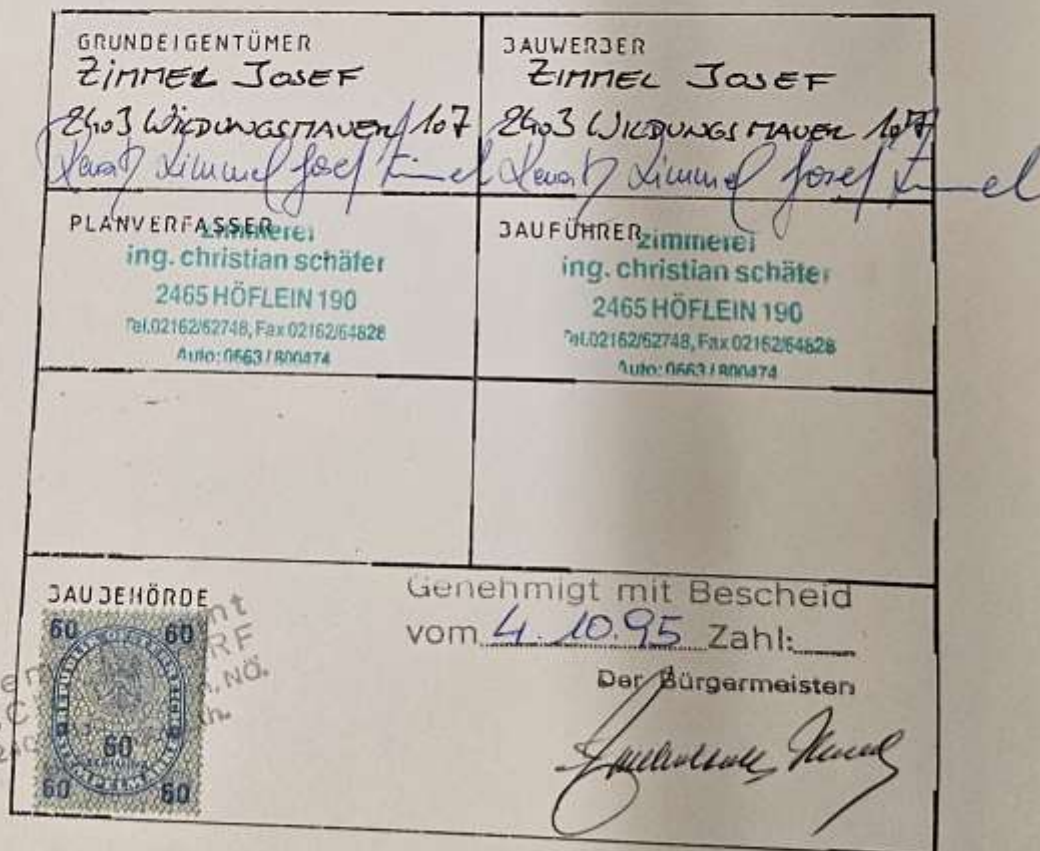 GRUNDEIGENTÜMER
ZIMMEL JOSEF
2403 WILDUNGSMAUER 107
Zimmel Josef Zimmel
BAUWERBER
ZIMMEL JOSEF
2403 WILDUNGSMAUER 107
Zimmel Josef Zimmel
PLANVERFASSER
zimmerei
ing. christian schäfer
2465 HÖFLEIN 190
Tel.02162/62748, Fax 02162/64828
Auto: 0663/800474
BAUFÜHRER
zimmerei
ing. christian schäfer
2465 HÖFLEIN 190
Tel.02162/62748, Fax 02162/64828
Auto: 0663/800474
BAUBEHÖRDE
60 60
60
60 60
NÖ.
Genehmigt mit Bescheid
vom 4.10.95 Zahl:
Der Bürgermeister